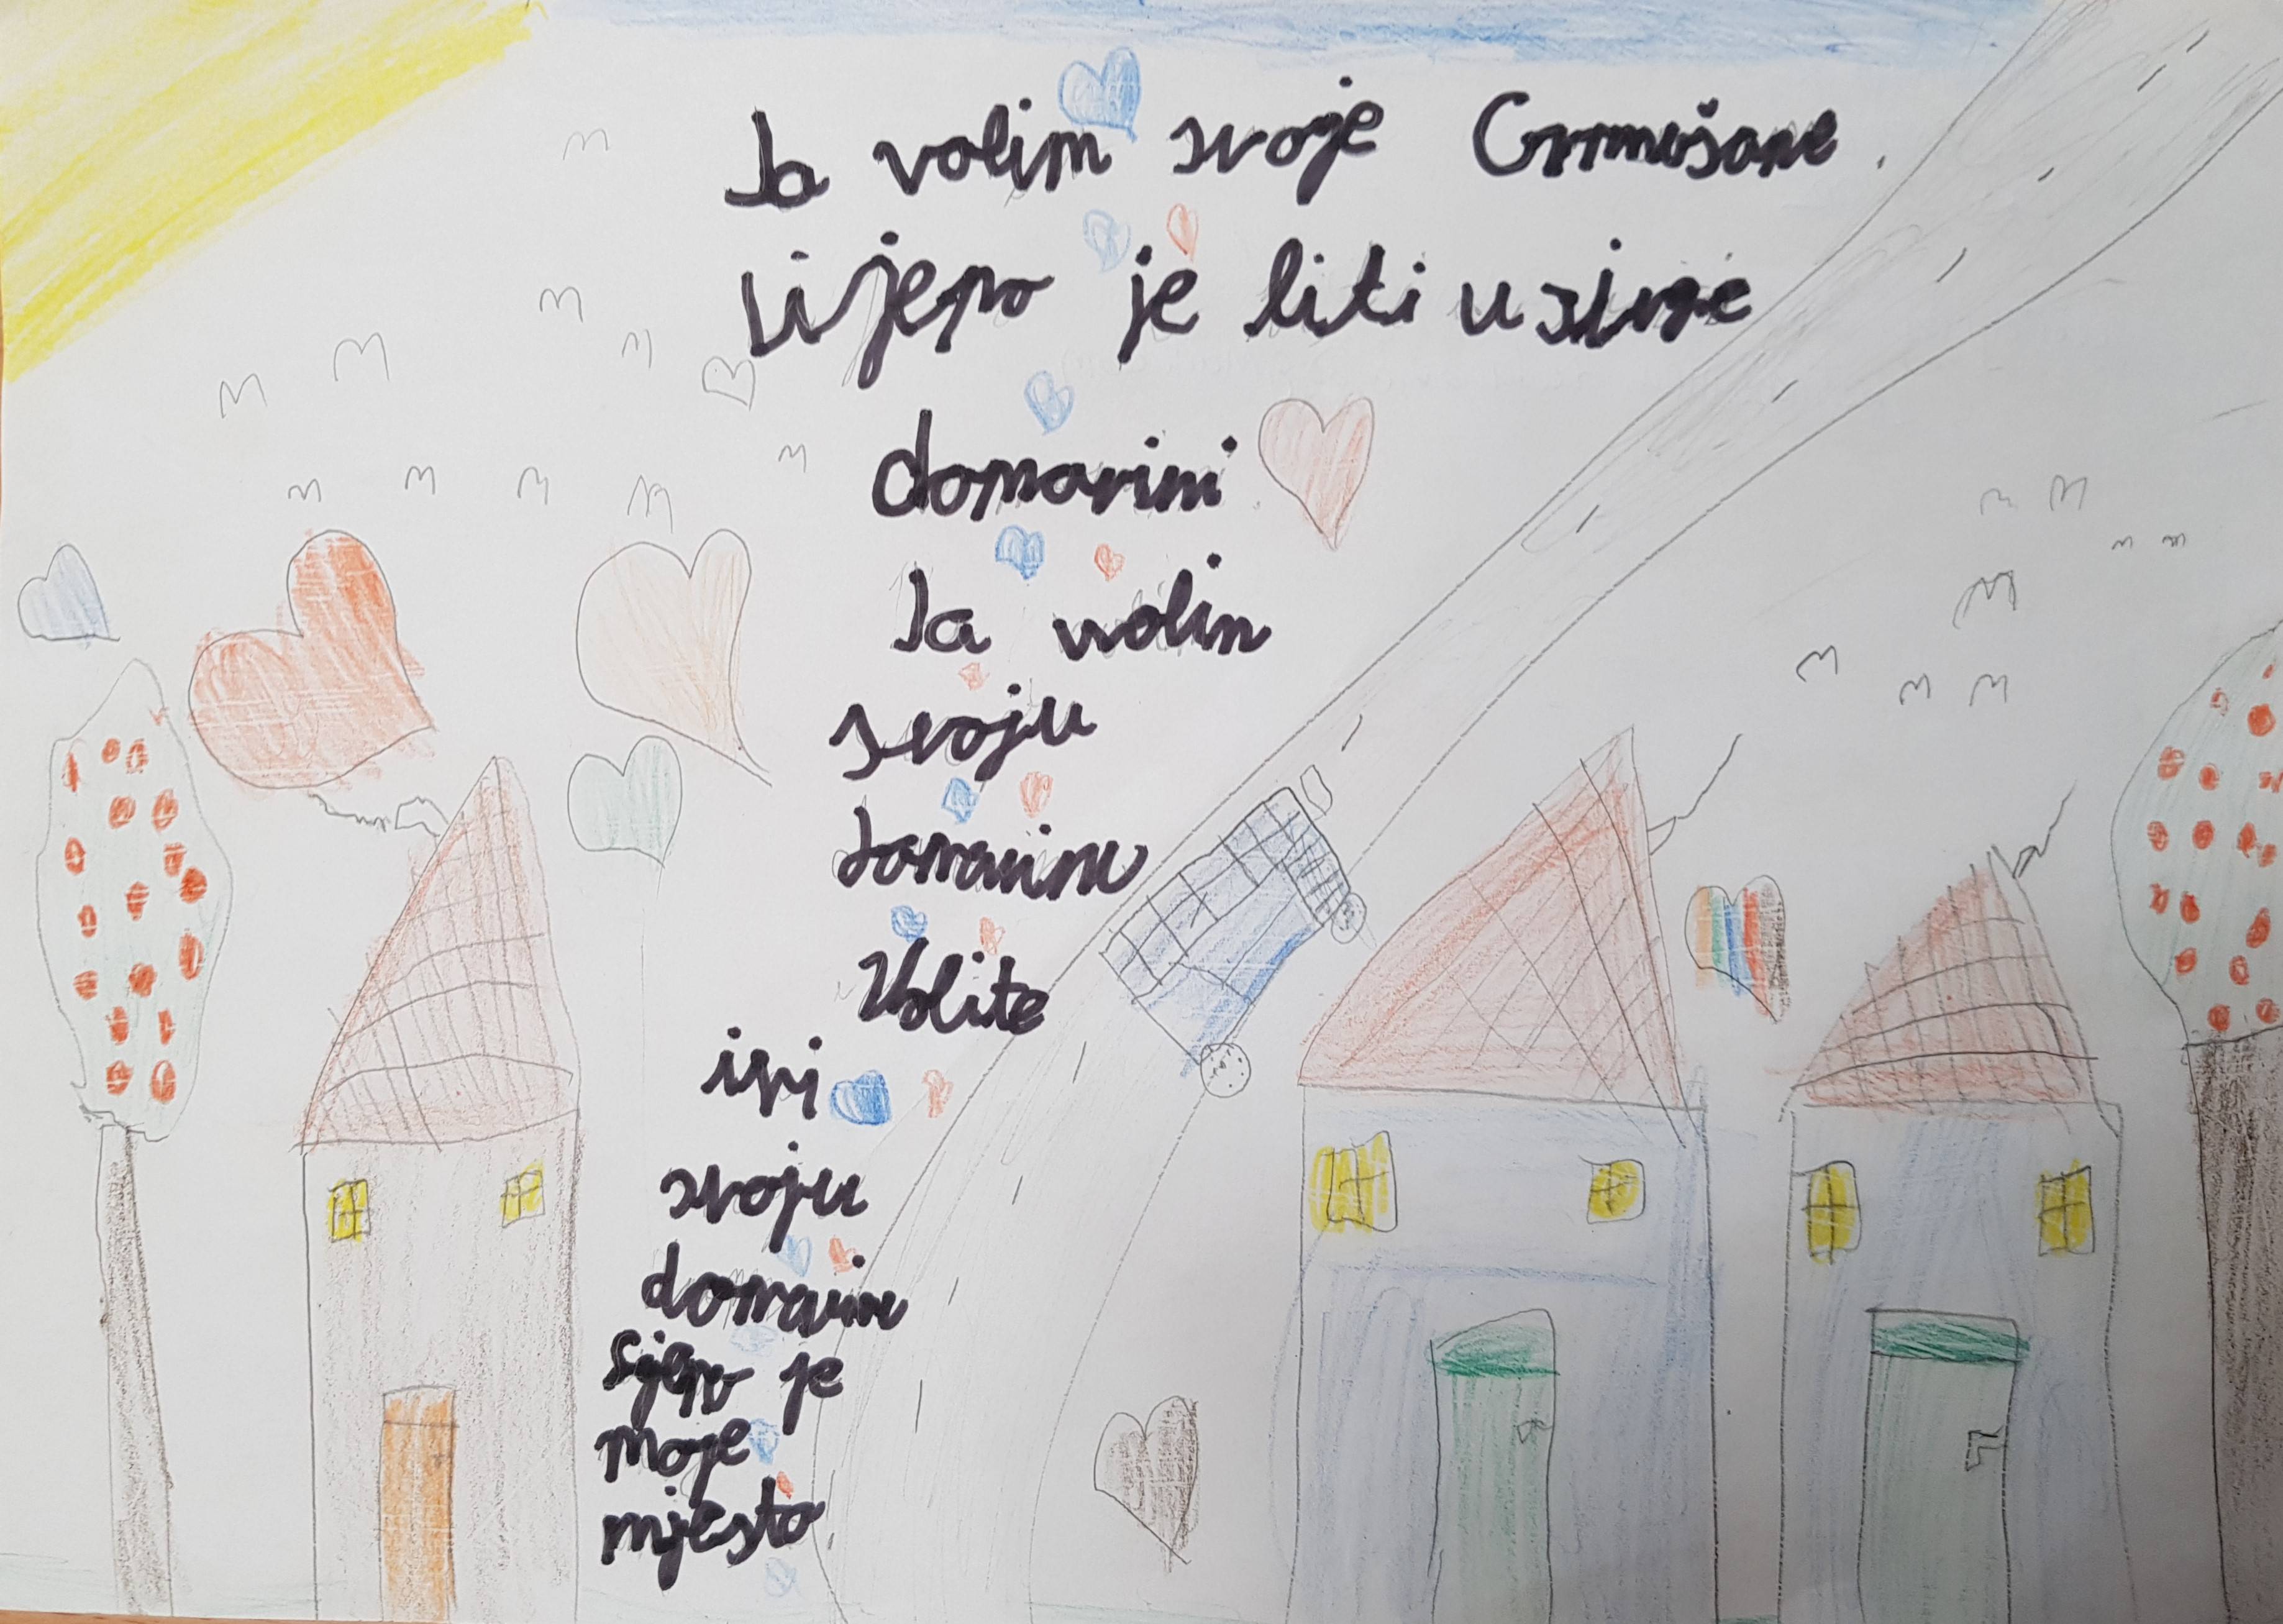 Ja volim svoje Grmušane.
Lijepo je biti u svoje
domavini
Ja volim
svoju
domavinu
Volite
i vi
svoju
domavinu
lijepo je
moje
mjesto